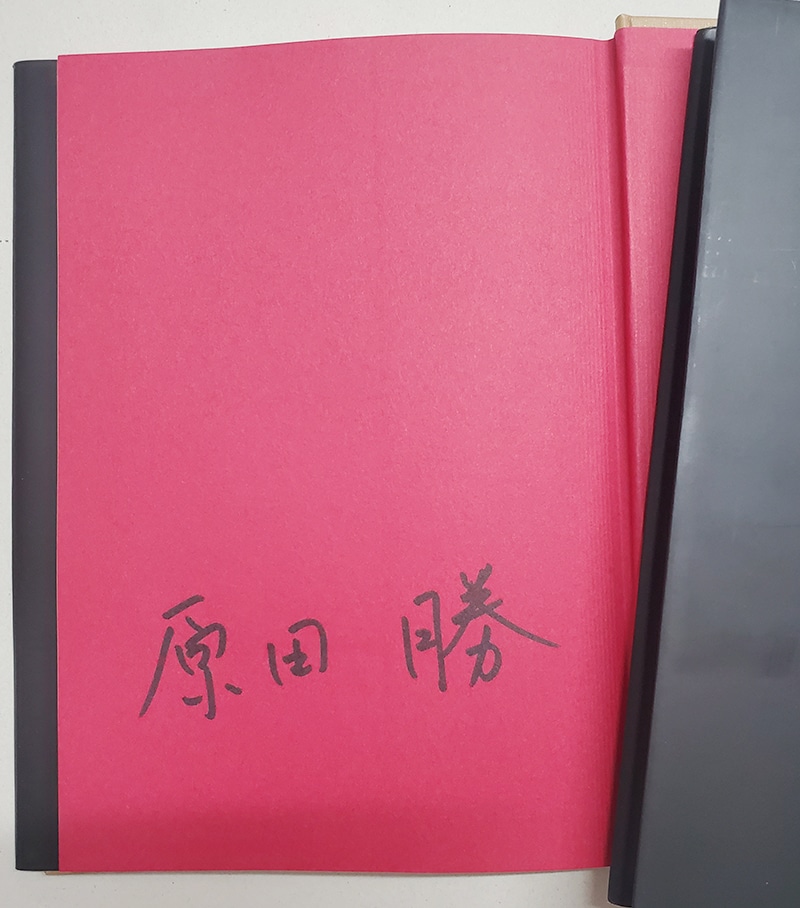 原田 勝